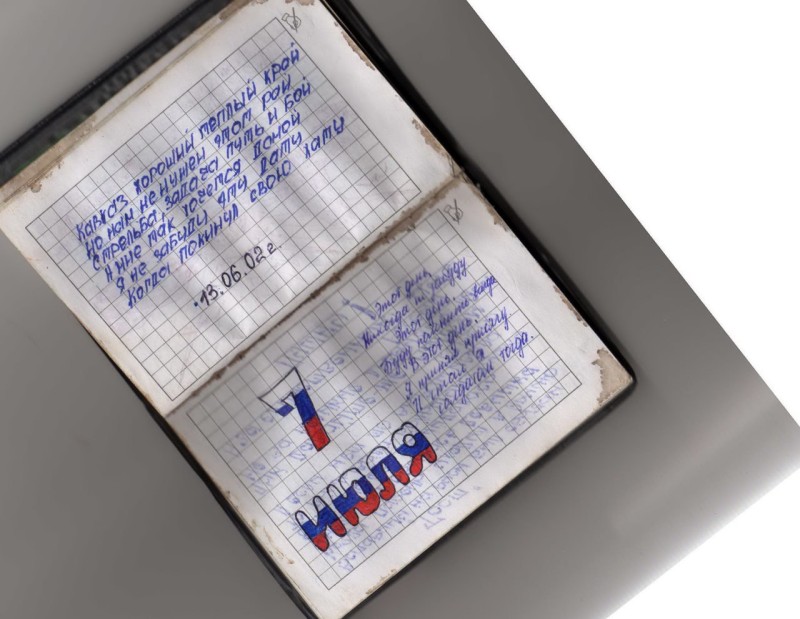 Кавказ хороший теплый край
Но нам не нужен этот рай
Стрельба, засада путь и бой
А мне так хочется домой
Я не забуду эту дату
Когда покинул свою хату
13.06.02 г.
Этот день
Никогда не забуду
Этот день.
Буду помнить
В этот день.
Я принял присягу
И стал я
солдатом тогда.
7
ИЮЛЯ